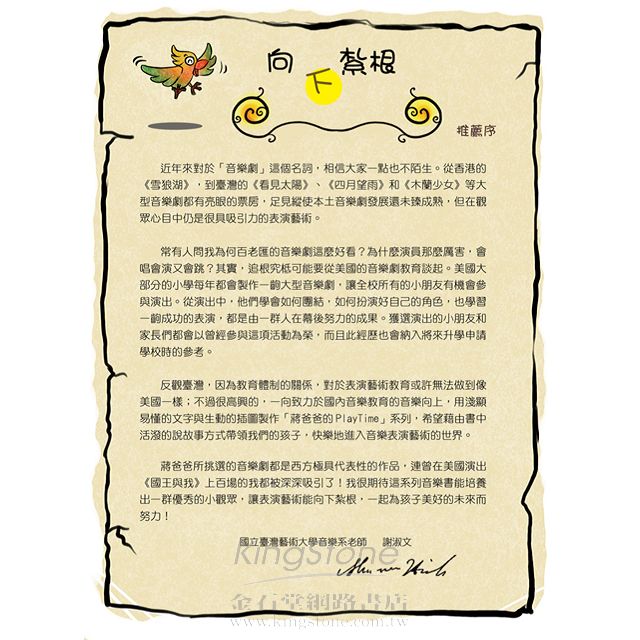 向下紮根
推薦序
近年來對於「音樂劇」這個名詞，相信大家一點也不陌生。從香港的
《雪狼湖》，到臺灣的《看見太陽》、《四月望雨》和《木蘭少女》等大
型音樂劇都有亮眼的票房，足見縱使本土音樂劇發展還未臻成熟，但在觀
眾心目中仍是很具吸引力的表演藝術。
常有人問我為何百老匯的音樂劇這麼好看？為什麼演員那麼厲害，會
唱會演又會跳？其實，追根究柢可能要從美國的音樂劇教育談起。美國大
部分的小學每年都會製作一齣大型音樂劇，讓全校所有的小朋友有機會參
與演出。從演出中，他們學會如何團結，如何扮演好自己的角色，也學習
一齣成功的表演，都是由一群人在幕後努力的成果。獲選演出的小朋友和
家長們都會以曾經參與這項活動為榮，而且此經歷也會納入將來升學申請
學校時的參考。
反觀臺灣，因為教育體制的關係，對於表演藝術教育或許無法做到像
美國一樣；不過很高興的，一向致力於國內音樂教育的音樂向上，用淺顯
易懂的文字與生動的插圖製作「蔣爸爸的PlayTime」系列，希望藉由書中
活潑的說故事方式帶領我們的孩子，快樂地進入音樂表演藝術的世界。
蔣爸爸所挑選的音樂劇都是西方極具代表性的作品，連曾在美國演出
《國王與我》上百場的我都被深深吸引了！我很期待這系列音樂書能培養
出一群優秀的小觀眾，讓表演藝術能向下紮根，一起為孩子美好的未來而
努力！
國立臺灣藝術大學音樂系老師 謝淑文
KingStone
金石堂網路書店
www.kingstone.com.tw